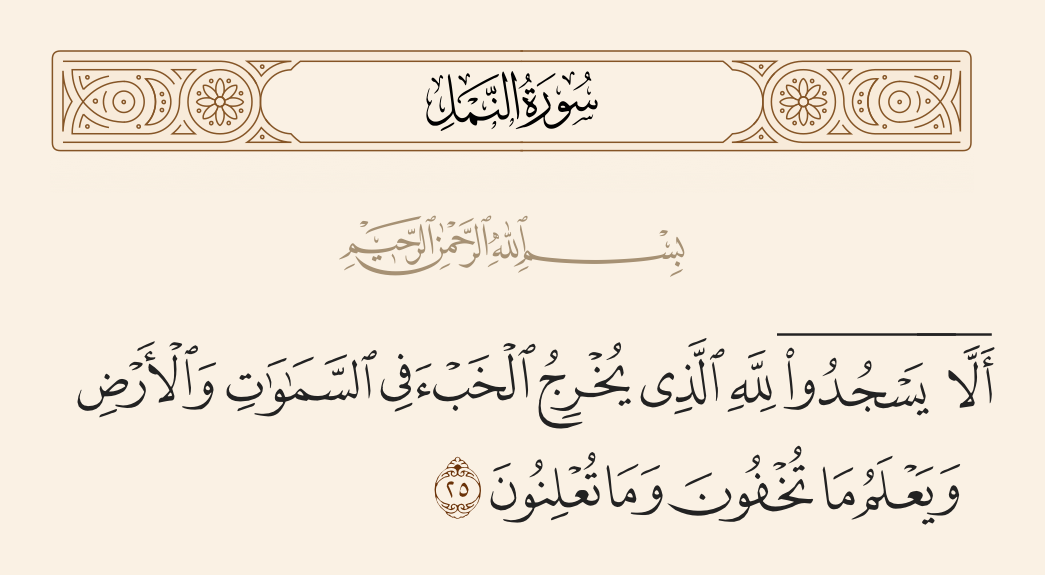 سُورَةُ النَّمْلِ
بِسْمِ اللَّهِ الرَّحْمَٰنِ الرَّحِيمِ
أَلَّا يَسْجُدُوا۟ لِلَّهِ ٱلَّذِى يُخْرِجُ ٱلْخَبْءَ فِى ٱلسَّمَٰوَٰتِ وَٱلْأَرْضِ
وَيَعْلَمُ مَا تُخْفُونَ وَمَا تُعْلِنُونَ ٢٥